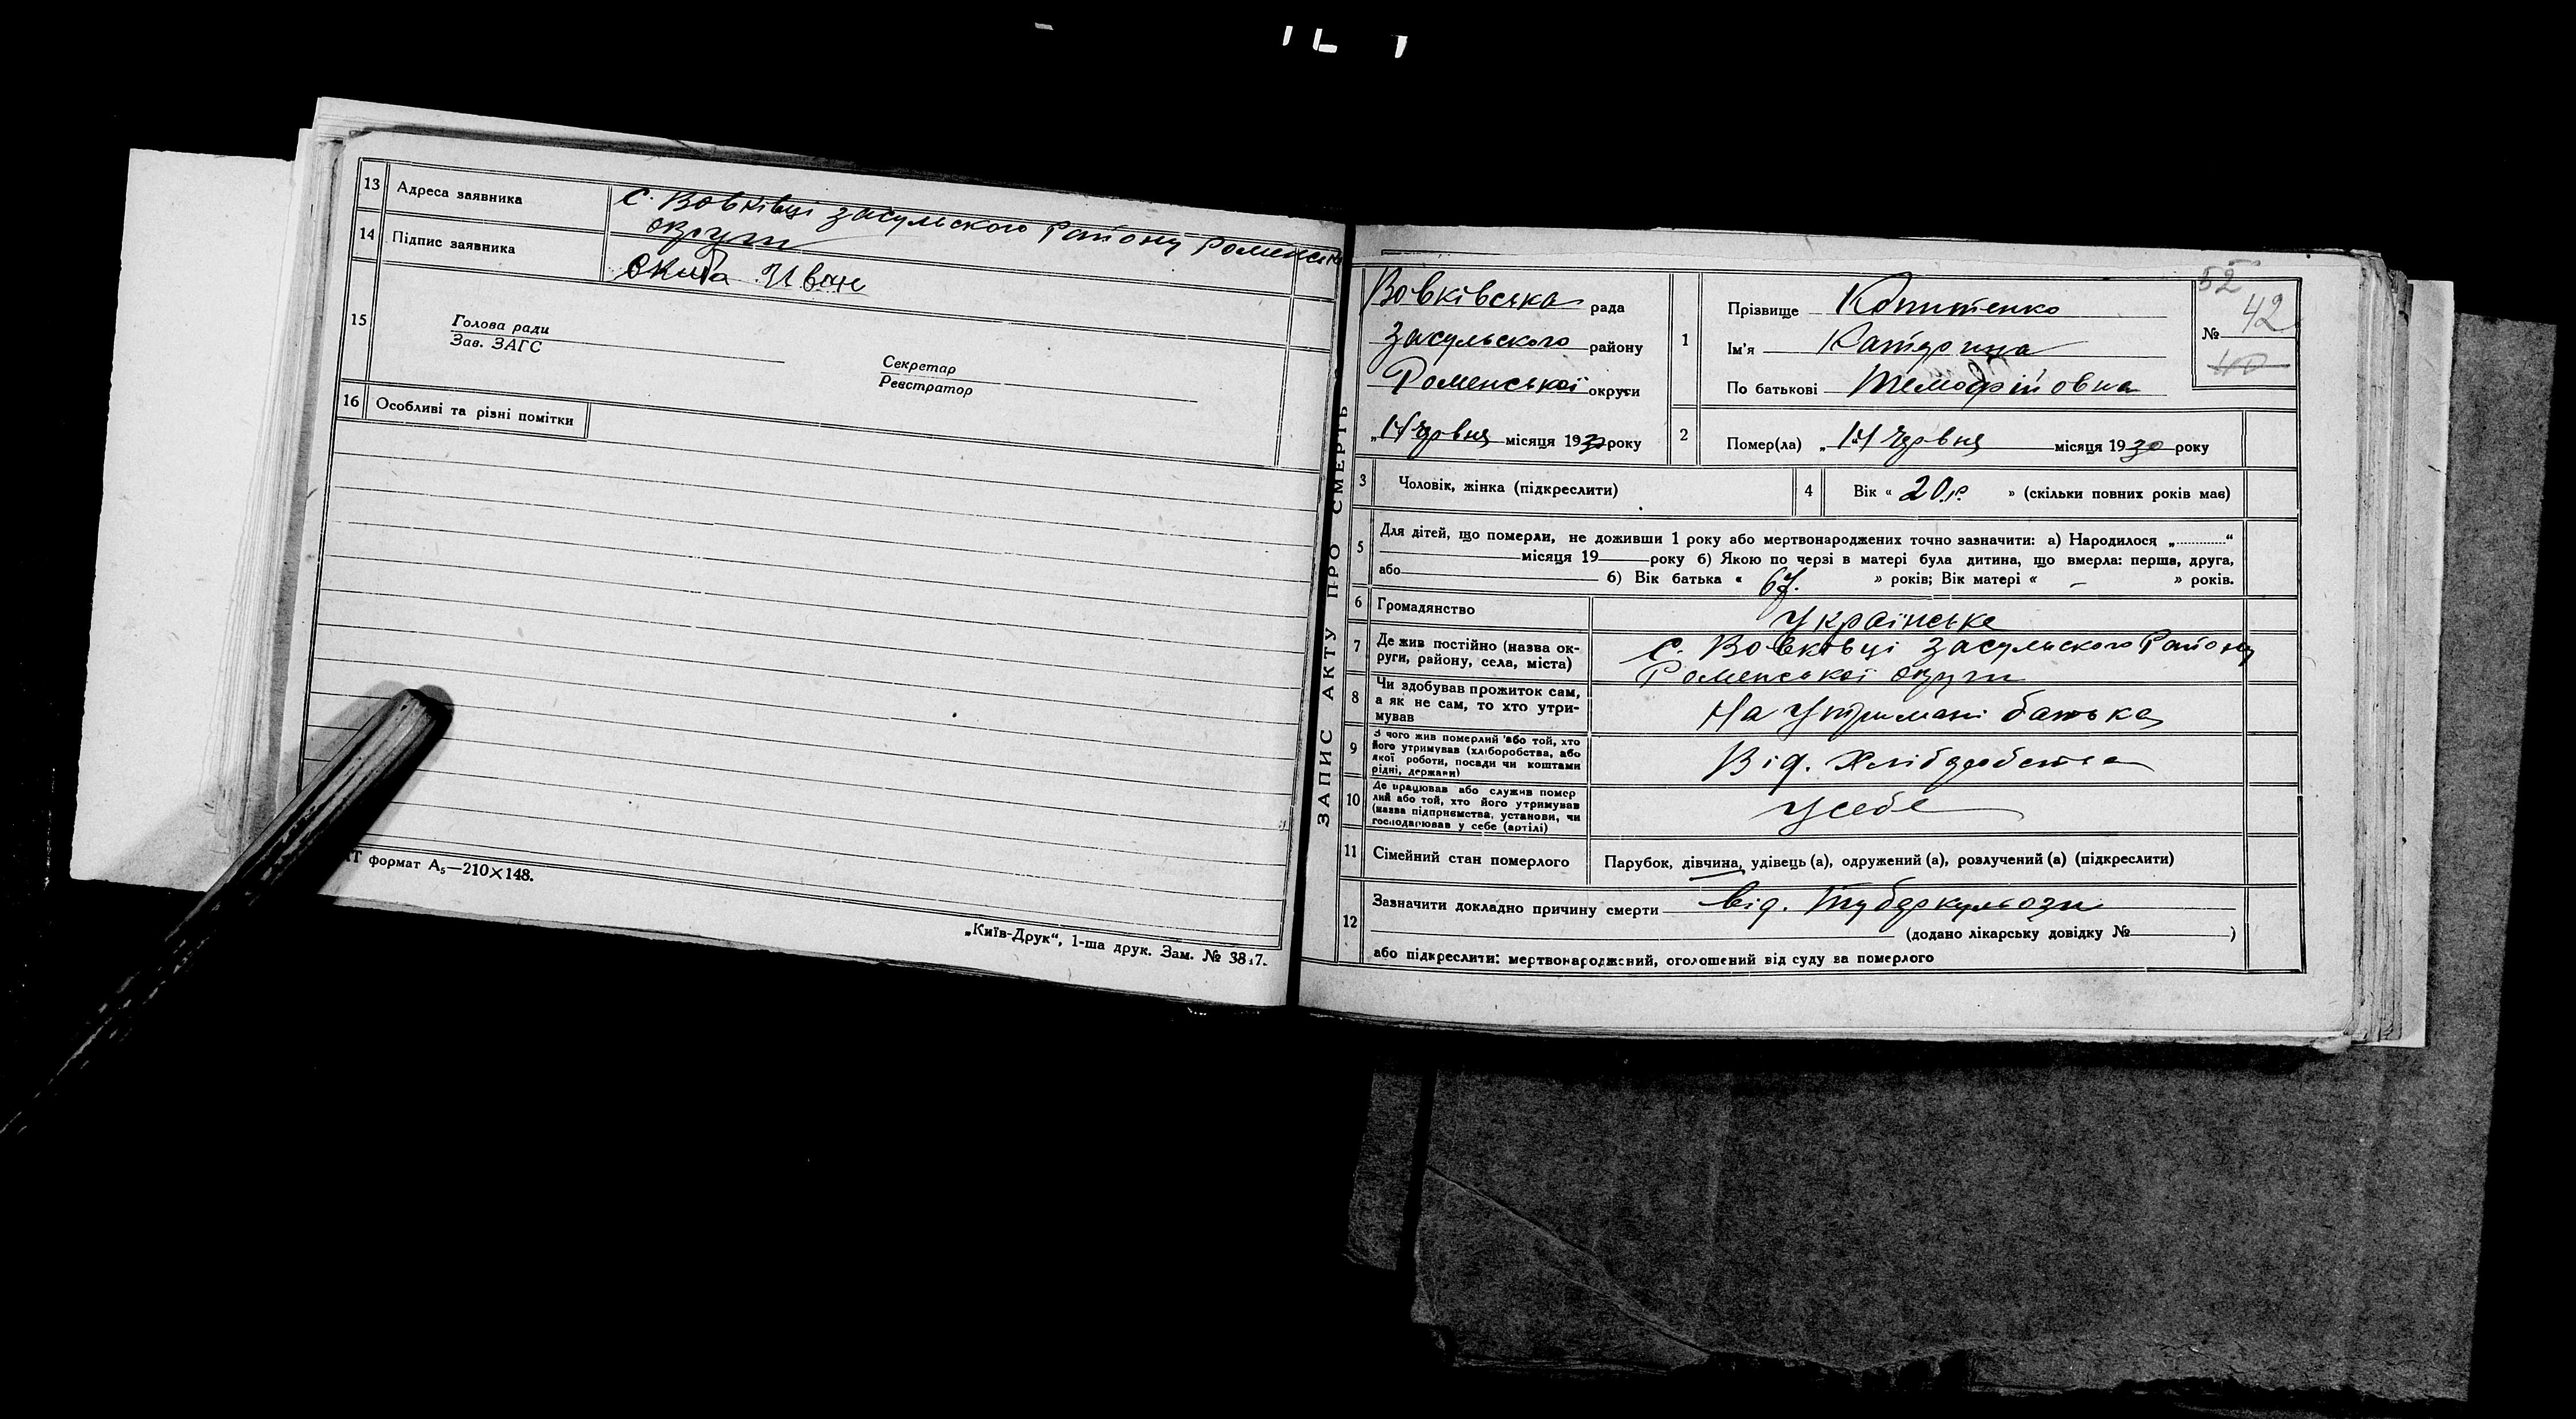 13 Адреса заявника
С. Вовківці засульского Району Роменськ
округи
14 Підпис заявника
Иван
15
Голова ради
Зав. ЗАГС
Секретар
Реєстратор
16 Особливі та різні помітки
формат А5—210×148.
„Київ-Друк“, 1-ша друк. Зам. №
ЗАПИС АКТУ ПРО СМЕРТЬ
Вовківська рада
Засульского району
Роменської округи
„14 червня місяця 1930 року
1
Прізвище Копитенко
Ім'я Катерина
По батькові Темофійовна
52
№ 42
40
2 Помер(ла) „14 червня місяця 1930 року
3 Чоловік, жінка (підкреслити)
4 Вік « 20 р. » (скільки повних років мав)
5 Для дітей, що померли, не доживши 1 року або мертвонароджених точно зазначити: а) Народилося „............“
місяця 19 року б) Якою по черзі в матері була дитина, що вмерла: перша, друга,
або б) Вік батька « 67. » років; Вік матері « – » років.
6 Громадянство Українське
7 Де жив постійно (назва ок-
руги, району, села, міста)
С. Вовківці Засульского Району
Роменської округи
8 Чи здобував прожиток сам,
а як не сам, то хто утри-
мував
На утримані батька
9 З чого жив померлий або той, хто
його утримував (хліборобства, або
якої роботи, посади чи коштами
рідні, держави)
Від. Хліборобства
10 Де працював або служив помер
лий або той, хто його утримував
(назва підприємства, установи, чи
господарював у себе (артілі)
у себе
11 Сімейний стан померлого
Парубок, дівчина, удівець (а), одружений (а), розлучений (а) (підкреслити)
12 Зазначити докладно причину смерти від. Туберкульози
(додано лікарську довідку № )
або підкреслити: мертвонароджений, оголошений від суду за померлого